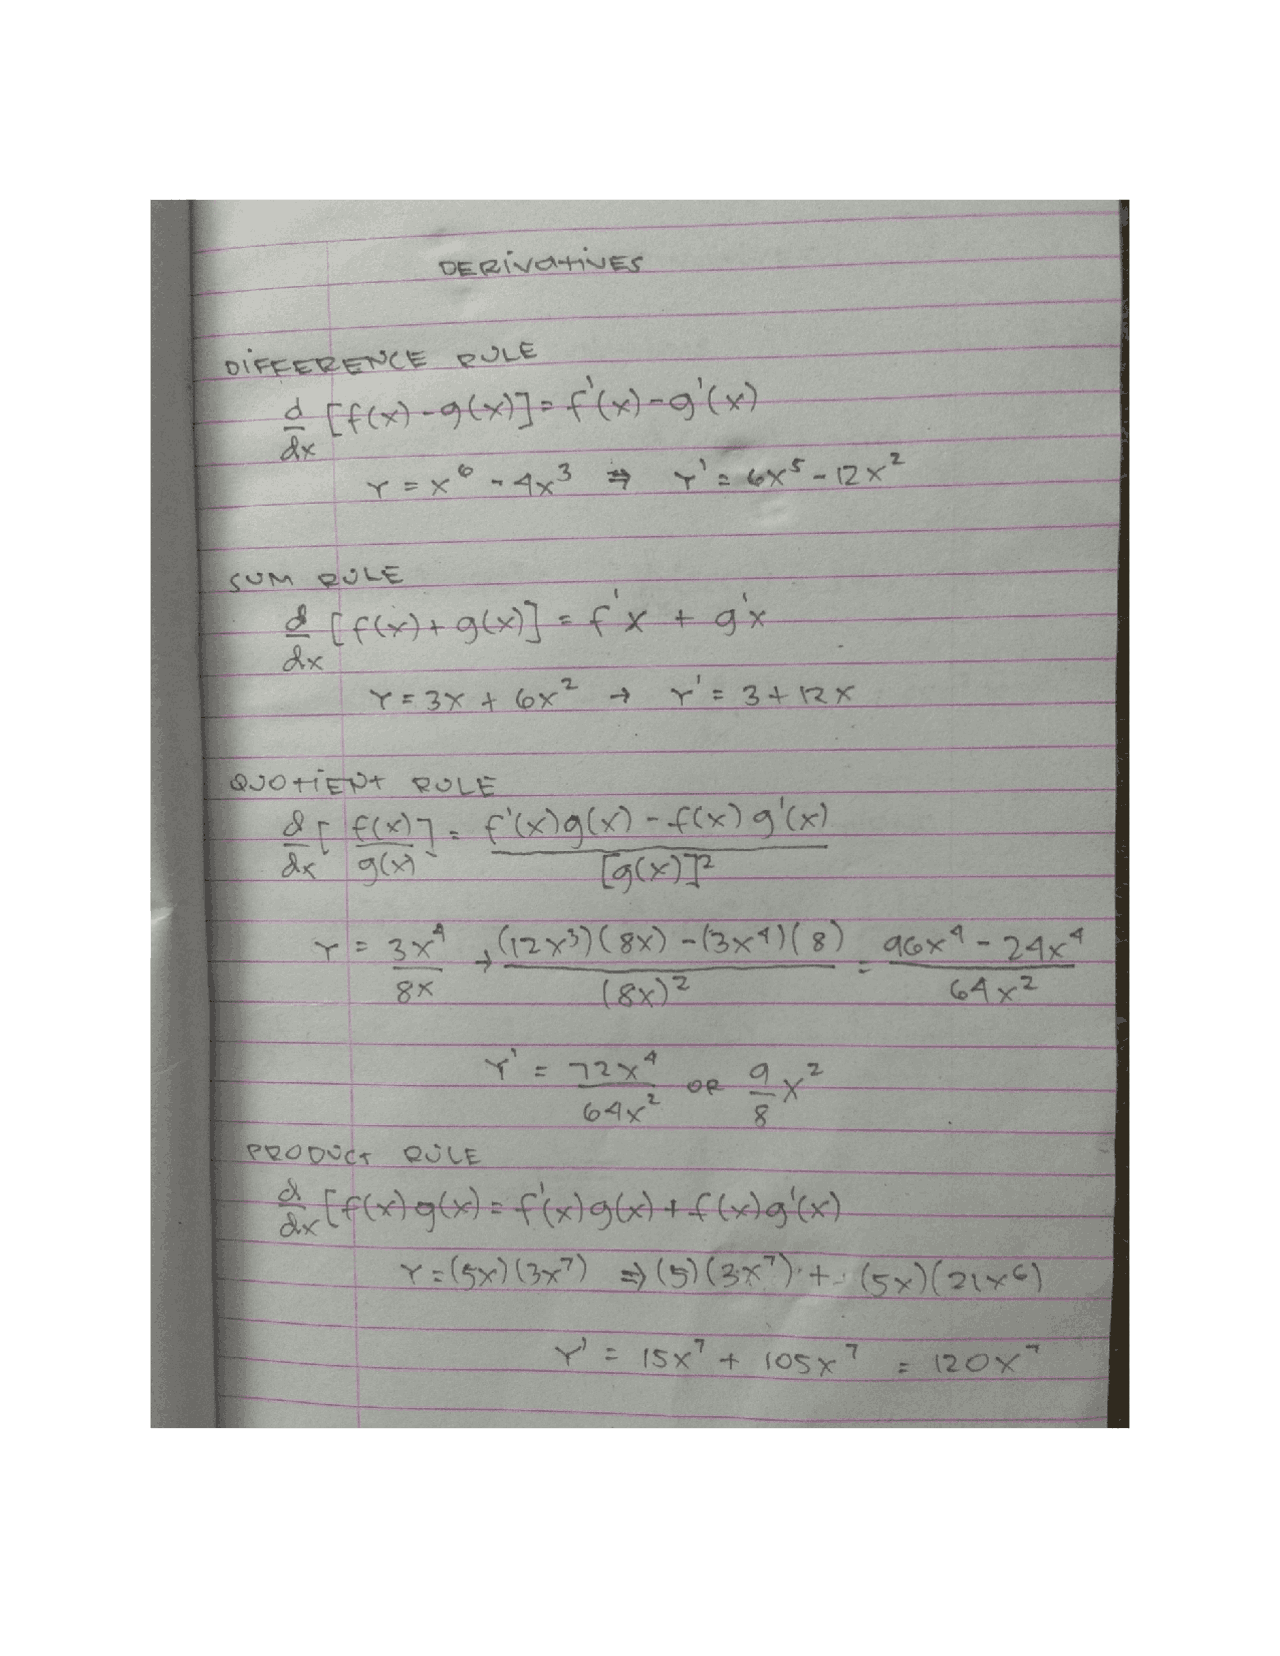 DERIVATIVES
DIFFERENCE RULE
d/dx [f(x) - g(x)] = f'(x) - g'(x)
Y = x⁶ - 4x³ ⇒ Y' = 6x⁵ - 12x²
SUM RULE
d/dx [f(x) + g(x)] = f'x + g'x
Y = 3x + 6x² → Y' = 3 + 12x
QUOTIENT RULE
d/dx [f(x)/g(x)] = f'(x)g(x) - f(x)g'(x) / [g(x)]²
Y = 3x⁴/8x → (12x³)(8x) - (3x⁴)(8) / (8x)² = 96x⁴ - 24x⁴ / 64x²
Y' = 72x⁴/64x² OR 9/8 x²
PRODUCT RULE
d/dx [f(x)g(x) = f'(x)g(x) + f(x)g'(x)
Y = (5x)(3x⁷) ⇒ (5)(3x⁷) + (5x)(21x⁶)
Y' = 15x⁷ + 105x⁷ = 120x⁷